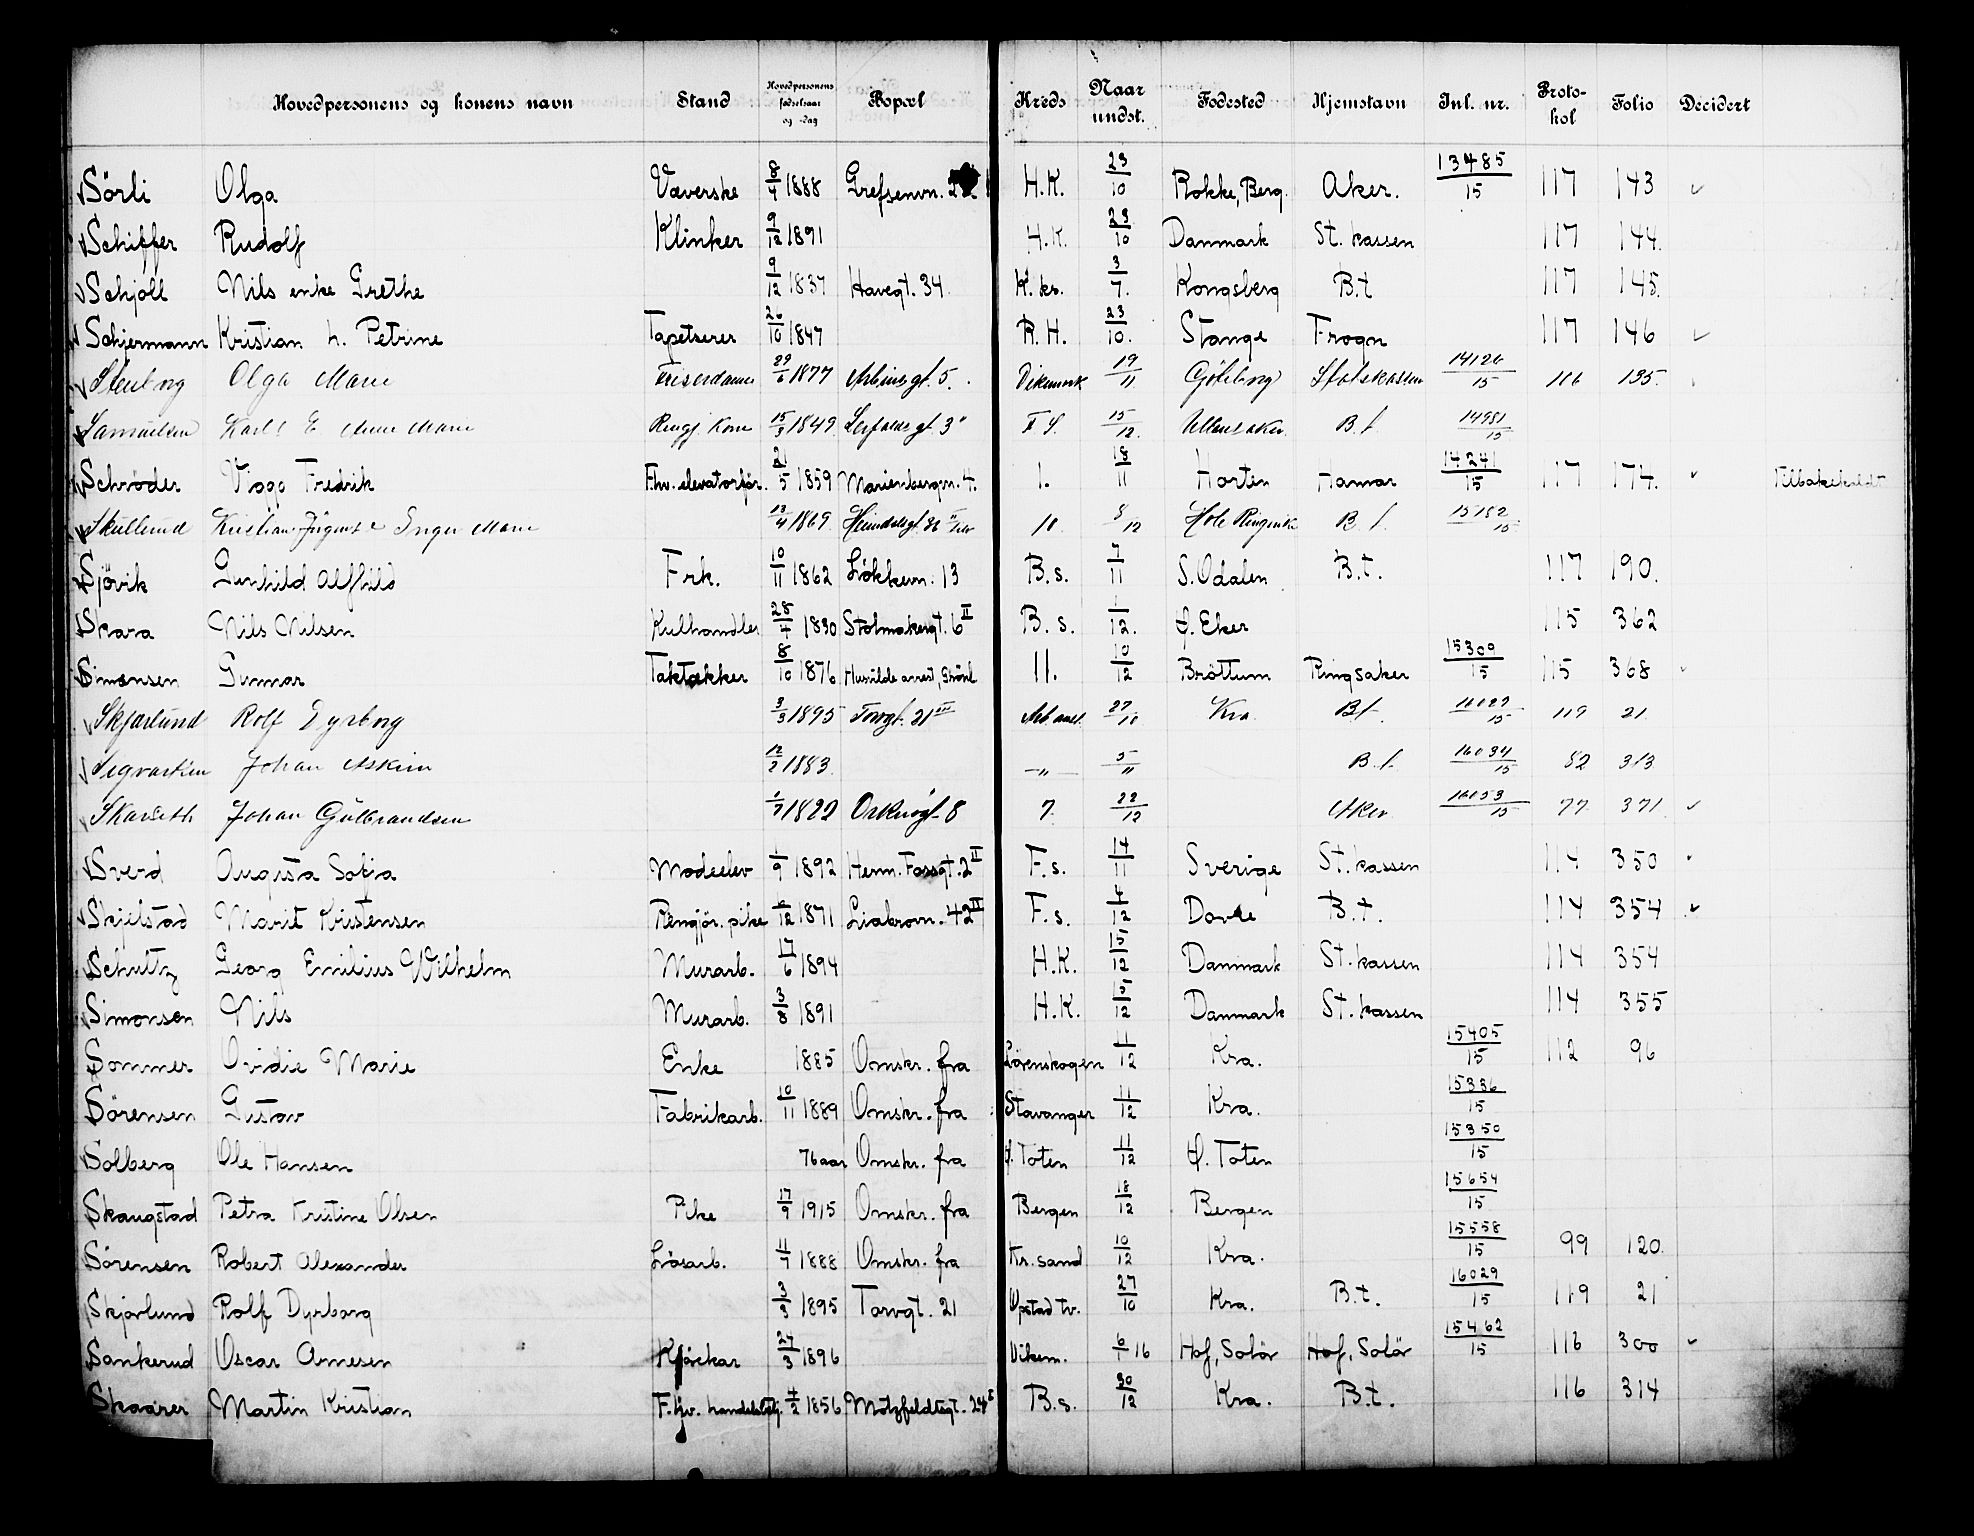 Hovedpersonens og konens navn Stand Hovedpersonens fødselsaar og -dag Bopæl Kreds Naar undst. Fødested Hjemstavn Inl. nr. Proto-kol Folio Decidert
Sörli Olga Væverske 8/4 1888 Grefsenvn. H.K. 23/10 Rokke, Berg. Aker. 13485/15 117 143
Schiffer Rudolf Klinker 9/12 1891 H.K. 23/10 Danmark St. kassen 117 144.
Schjöll Nils enke Grethe 9/12 1837 Havegt. 34. K. kr. 3/7. Kongsberg B.t 117 145.
Schjermann Kristian h. Petrine Tapetserer 26/10 1847 R.H. 23/10. Stange Frogn 117 146
Stenborg Olga Marie Friserdame 29/6 1877 Arbiensgt. 5. Dikemark 19/11 Göteborg Statskassen 14126/15 116 135.
Samuelsen Karl E Anne Marie Rengj. Kone 15/3 1849. gt. 3" 15/12. Ullensaker. B.t. 14981/15
Schröder Viggo Fredrik F.hv. elevatorför. 21/5 1859 Marienbergvn. 4. 1. 18/11 Horten Hamar 14241/15 117 174. Tilbakekaldt
Skullerud Kristian August e Inger Marie 13/4 1869. 10. 8/12 Hole Ringerike B.t. 15182/15
Sjövik Gunhild Alfhild Frk. 10/11 1862 Lökkevn. 13 B.s. 7/11 S. Odalen B.t. 117 190.
Skara Nils Nilsen Kulhandler 28/4 1830 Stolmakergt. 6 II B.s. 1/12. Ø. Eker 115 362
Simensen Gunnar Taktækker 8/10 1876 Husvilde arrest, Grönl 11. 10/12 Bröttum Ringsaker 15309/15 115 368
Skjørlund Rolf Dyrborg 3/3 1895 Torvgt. 21 Arb anst. 27/10 Kra B.t. 16029/15 119 21.
Sigvartsen Johan Askim 12/2 1883. —"— 5/11 B.t. 16034/15 82 313
Skarseth Johan Gulbrandsen 1/7 1822 gt. 8 7. 22/12 Aker 16053/15 77. 371
Sverd Augusta Sofia Modeelev 1/9 1892 Herm. Fossgt. 2 II F.s. 14/11 Sverige St. kassen 114 350
Skjelstad Marit Kristensen Rengjör. pike 6/12 1871 Liabrovn. 42 II F.s. 4/12 Dovre B.t. 114 354
Schultz Georg Emilius Wilhelm Murarb. 17/6 1894 H.K. 15/12 Danmark St. kassen 114 354
Simonsen Nils Murarb. 3/8 1891 H.K. 15/12 Danmark St. kassen 114 355
Sommer Ovidie Marie Enke 1885 Omskr. fra Lörenskogen 11/12 Kra. 15405/15 112 96
Sörensen Gustav Fabrikarb. 10/11 1889 Omskr. fra Stavanger 11/12 Kra. 15336/15
Solberg Ole Hansen 76 aar Omskr. fra Ø. Toten 11/12 Ø. Toten 15350/15
Skaugstad Petra Kristine Olsen Pike 17/9 1915 Omskr. fra Bergen 18/12 Bergen 15654/15
Sörensen Robert Alexander Lösarb. 11/7 1888 Omskr. fra Kr. sand 10/12 Kra. 15558/15 99 120.
Skjörlund Rolf Dyrborg 3/3 1895 Torvgt. 21 Opstad tv. 27/10 Kra. B.t. 16029/15 119 21
Sankerud Oscar Arnesen Kjörekar 27/3 1896 Dikem. 6/1 16 Hof, Solör Hof, Solör 15462/15 116 300
Skaarer Martin Kristian F. hv. handelsbtj. 4/2 1856 Motzfeldtsgt. 24 B.s. 30/12 Kra. B.t. 116 314